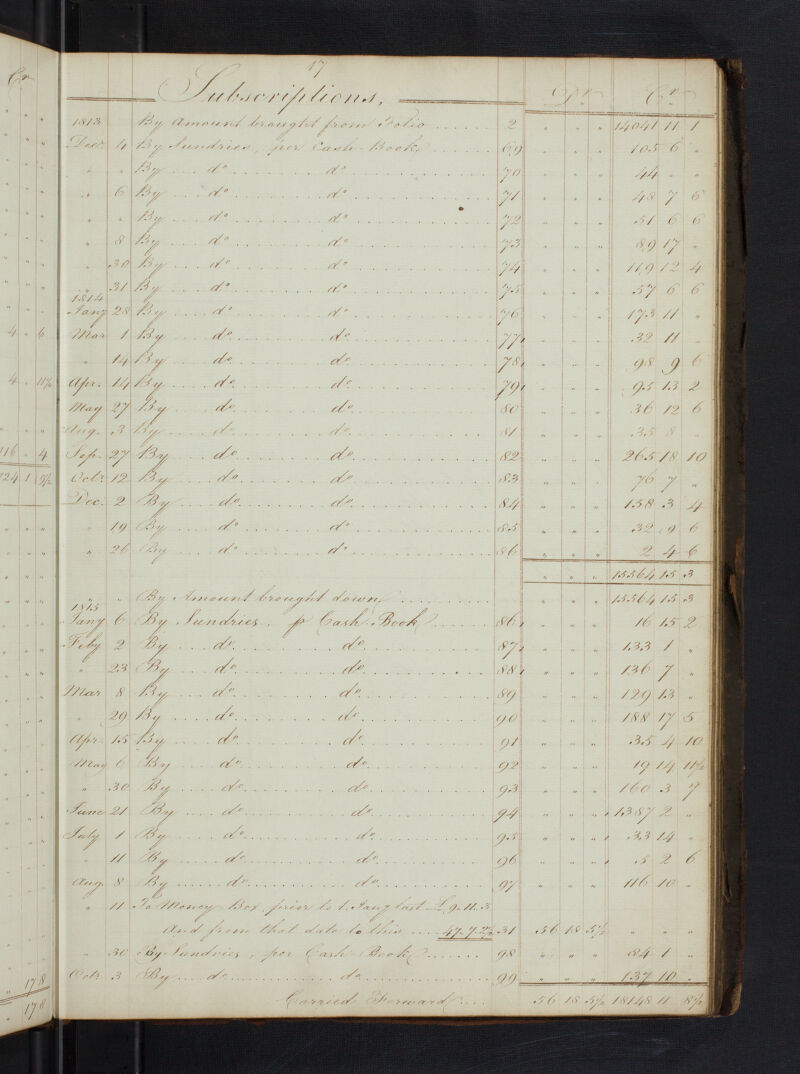 Cr
4 " 6
4 " 11½
116 " 4
124 1 9½
" 17 8
" 17 8
17
Subscriptions.
Dr. Cr.
1813 By Amount brought from Folio ...... 2 " " " 14041 11 1
Decr. 4 By Sundries, per Cash Book, ...... 69 " " " 105 6 "
" " By .... do ........ do ...... 70 " " " 44 " "
" 6 By .... do ........ do ...... 71 " " " 48 7 6
" " By .... do ........ do ...... 72 " " " 51 6 6
" 8 By .... do ........ do ...... 73 " " " 89 17 "
" 30 By .... do ........ do ...... 74 " " " 119 12 4
" 31 By .... do ........ do ...... 75 " " " 57 6 6
1814
Jany 28 By .... do ........ do ...... 76 " " " 173 11 "
Mar 1 By .... do ........ do ...... 77 " " " 32 11 "
" 14 By .... do ........ do ...... 78 " " " 98 9 6
Apr. 14 By .... do ........ do ...... 79 " " " 95 13 2
May 27 By .... do ........ do ...... 80 " " " 36 12 6
Aug. 3 By .... do ........ do ...... 81 " " " 35 8 "
Sep. 27 By .... do ........ do ...... 82 " " " 265 18 10
Octr. 12 By .... do ........ do ...... 83 " " " 76 7 "
Dec. 2 By .... do ........ do ...... 84 " " " 158 3 4
" 19 By .... do ........ do ...... 85 " " " 32 9 6
" 26 By .... do ........ do ...... 86 " " " 2 4 6
" " " 15564 15 3
" " By Amount brought down ...... " " " 15564 15 3
1815
Jany 6 By Sundries. p Cash Book ...... 86 " " " 16 15 2
Feby 2 By .... do ........ do ...... 87 " " " 133 1 "
" 23 By .... do ........ do ...... 88 " " " 136 7 "
Mar 8 By .... do ........ do ...... 89 " " " 129 13 "
" 29 By .... do ........ do ...... 90 " " " 188 17 5
Apr. 15 By .... do ........ do ...... 91 " " " 35 4 10
May 6 By .... do ........ do ...... 92 " " " 19 14 11½
" 30 By .... do ........ do ...... 93 " " " 160 3 7
June 21 By .... do ........ do ...... 94 " " " 1387 2 "
July 1 By .... do ........ do ...... 95 " " " 33 14 "
" 11 By .... do ........ do ...... 96 " " " 5 2 6
Aug. 8 By .... do ........ do ...... 97 " " " 116 10 "
" 11 To Money Box, prior to 1. Jany last £9.11.3
And from that date to this .... 47.7.2½ 31 56 18 5½ " " "
" 30 By Sundries, per Cash Book ...... 98 " " " 84 1 "
Octr. 3 By .... do ........ do ...... 99 " " " 137 10 "
Carried Forward .... 56 18 5½ 18148 11 8½